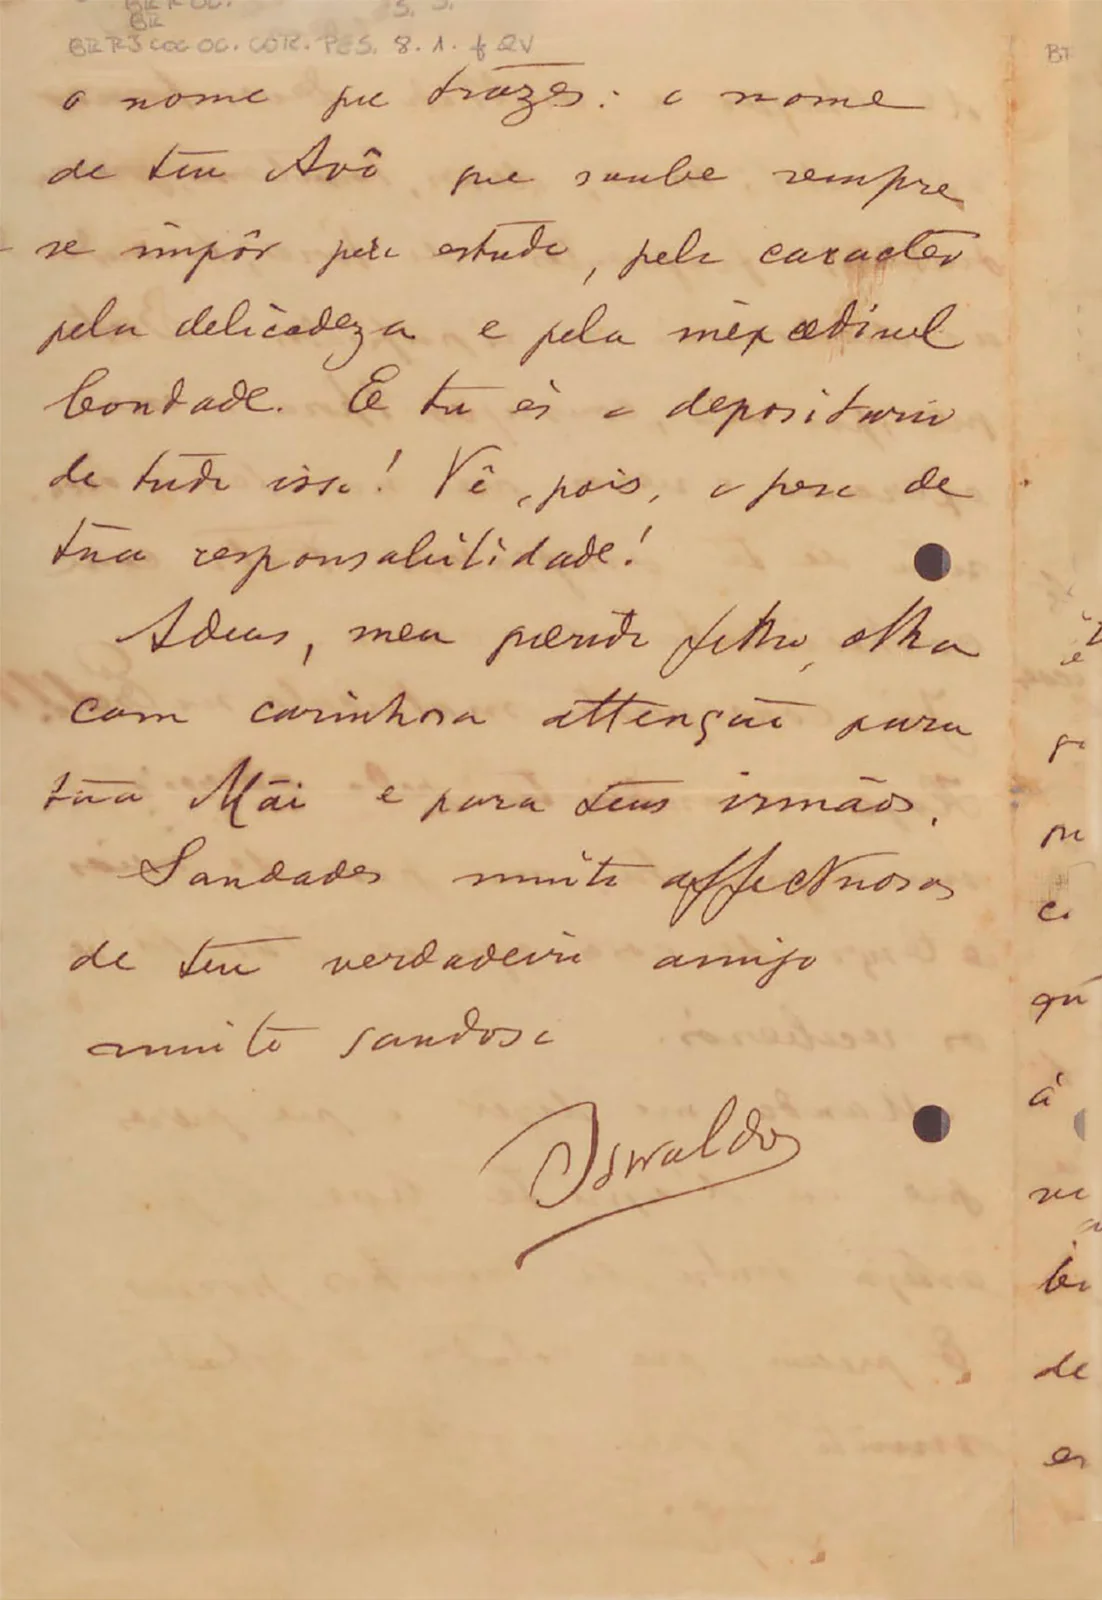 BR RJ COC OC. COR. PES. 8. 1. f 2V
o nome que trazes: o nome
de teu Avô que soube sempre
se impôr pelo estudo, pelo caracter
pela delicadeza e pela inexcedivel
bondade. E tu és o depositario
de tudo isso! Vê, pois, o peso de
tua responsabilidade!
Adeus, meu querido filho, olha
com carinhosa attenção para
tua Mãi e para teus irmãos.
Saudades muito affectuosas
de teu verdadeiro amigo
muito saudoso
Oswaldo